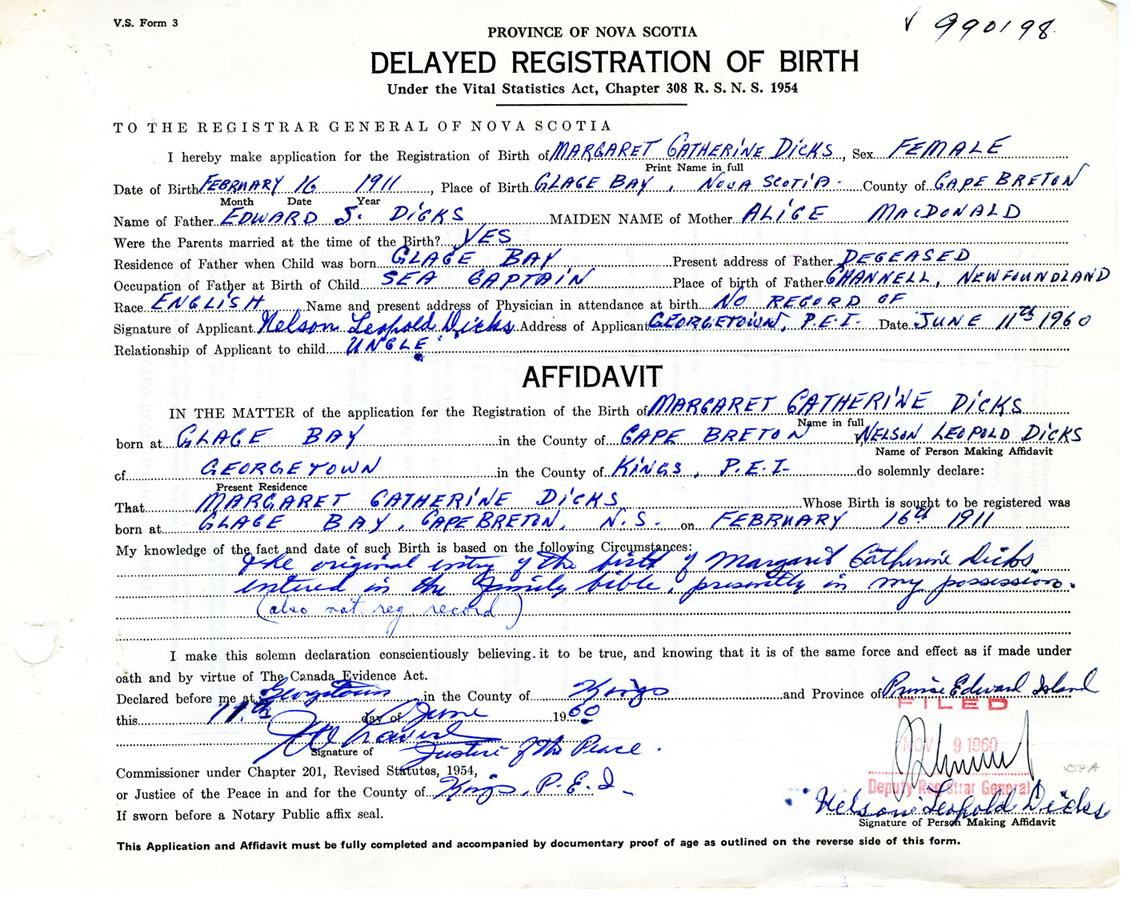 V.S. Form 3
PROVINCE OF NOVA SCOTIA
√ 990198
DELAYED REGISTRATION OF BIRTH
Under the Vital Statistics Act, Chapter 308 R. S. N. S. 1954
TO THE REGISTRAR GENERAL OF NOVA SCOTIA
I hereby make application for the Registration of Birth of MARGARET CATHERINE DICKS, Sex FEMALE
Print Name in full
Date of Birth FEBRUARY 16 1911, Place of Birth GLACE BAY, NOVA SCOTIA. County of CAPE BRETON
Month Date Year
Name of Father EDWARD J. DICKS MAIDEN NAME of Mother ALICE MACDONALD
Were the Parents married at the time of the Birth? YES
Residence of Father when Child was born GLACE BAY Present address of Father DECEASED
Occupation of Father at Birth of Child SEA CAPTAIN Place of birth of Father CHANNELL, NEWFOUNDLAND
Race ENGLISH Name and present address of Physician in attendance at birth NO RECORD OF
Signature of Applicant Nelson Leopold Dicks Address of Applicant GEORGETOWN, P.E.I. Date JUNE 11th 1960
Relationship of Applicant to child UNCLE
AFFIDAVIT
IN THE MATTER of the application for the Registration of the Birth of MARGARET CATHERINE DICKS
Name in full
born at GLACE BAY in the County of CAPE BRETON NELSON LEOPOLD DICKS
Name of Person Making Affidavit
of GEORGETOWN in the County of KINGS, P.E.I. do solemnly declare:
Present Residence
That MARGARET CATHERINE DICKS Whose Birth is sought to be registered was
born at GLACE BAY, CAPE BRETON, N.S. on FEBRUARY 16th 1911
My knowledge of the fact and date of such Birth is based on the following Circumstances:
The original entry of the birth of Margaret Catherine Dicks
entered in the family bible, presently in my possession.
(also nat reg record)
I make this solemn declaration conscientiously believing it to be true, and knowing that it is of the same force and effect as if made under
oath and by virtue of The Canada Evidence Act.
Declared before me at Georgetown in the County of Kings and Province of Prince Edward Island
this 11th day of June 1960
FILED
NOV 9 1960
Deputy Registrar General
Justice of the Peace.
Signature of
Commissioner under Chapter 201, Revised Statutes, 1954,
or Justice of the Peace in and for the County of Kings, P.E.I.
Nelson Leopold Dicks
If sworn before a Notary Public affix seal.
Signature of Person Making Affidavit
This Application and Affidavit must be fully completed and accompanied by documentary proof of age as outlined on the reverse side of this form.